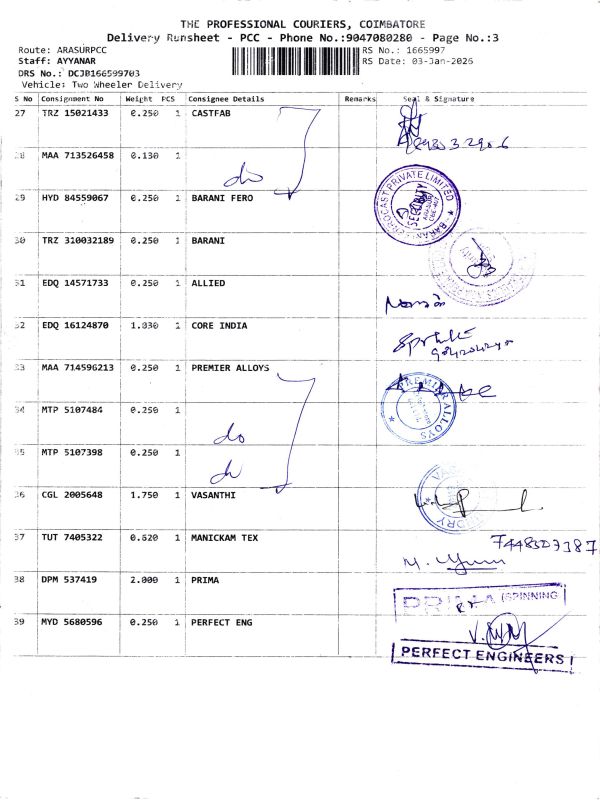 THE PROFESSIONAL COURIERS, COIMBATORE
Delivery Runsheet - PCC - Phone No.:9047080280 - Page No.:3
Route: ARASURPCC RS No.: 1665997
Staff: AYYANAR RS Date: 03-Jan-2026
DRS No.: DCJB166599703
Vehicle: Two Wheeler Delivery
S No Consignment No Weight PCS Consignee Details Remarks Seal & Signature
27 TRZ 15021433 0.250 1 CASTFAB
28 MAA 713526458 0.130 1 do
29 HYD 84559067 0.250 1 BARANI FERO
SECURITY
30 TRZ 310032189 0.250 1 BARANI
31 EDQ 14571733 0.250 1 ALLIED
32 EDQ 16124870 1.030 1 CORE INDIA
33 MAA 714596213 0.250 1 PREMIER ALLOYS
PREMIER ALLOYS
34 MTP 5107484 0.250 1 do
35 MTP 5107398 0.250 1 do
36 CGL 2005648 1.750 1 VASANTHI
37 TUT 7405322 0.620 1 MANICKAM TEX
38 DPM 537419 2.000 1 PRIMA
PRIMA SPINNING
39 MYD 5680596 0.250 1 PERFECT ENG
PERFECT ENGINEERS